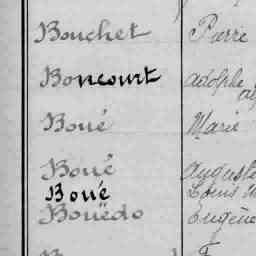 Bouchet Pierre
Boncourt Adolphe
Boué Marie
Boué Auguste
Boué Louis
Bouëdo Eugène